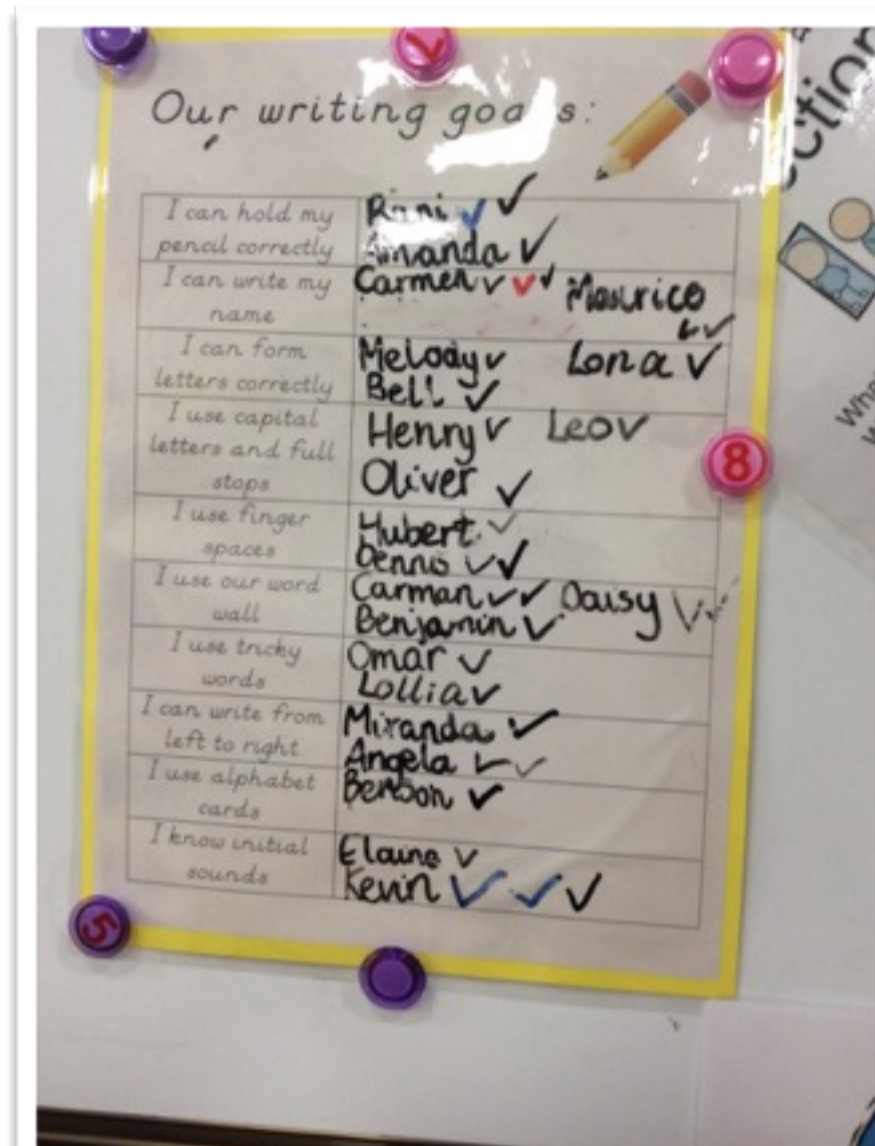 Our writing goa s:
I can hold my
pencil correctly
Rani ✓ ✓
Amanda ✓
I can write my
name
Carmen ✓ ✓ ✓ Maurico
✓✓
I can form
letters correctly
Melody ✓ Lona ✓
Bell ✓
I use capital
letters and full
stops
Henry ✓ Leo ✓
Oliver ✓
I use finger
spaces
Hubert ✓
Dennis ✓✓
I use our word
wall
Carman ✓✓ Daisy ✓
Benjamin ✓
I use tricky
words
Omar ✓
Lollia ✓
I can write from
left to right
Miranda ✓
Angela ✓✓
I use alphabet
cards
Benson ✓
I know initial
sounds
Elaine ✓
Kevin ✓ ✓ ✓
8
5
ction